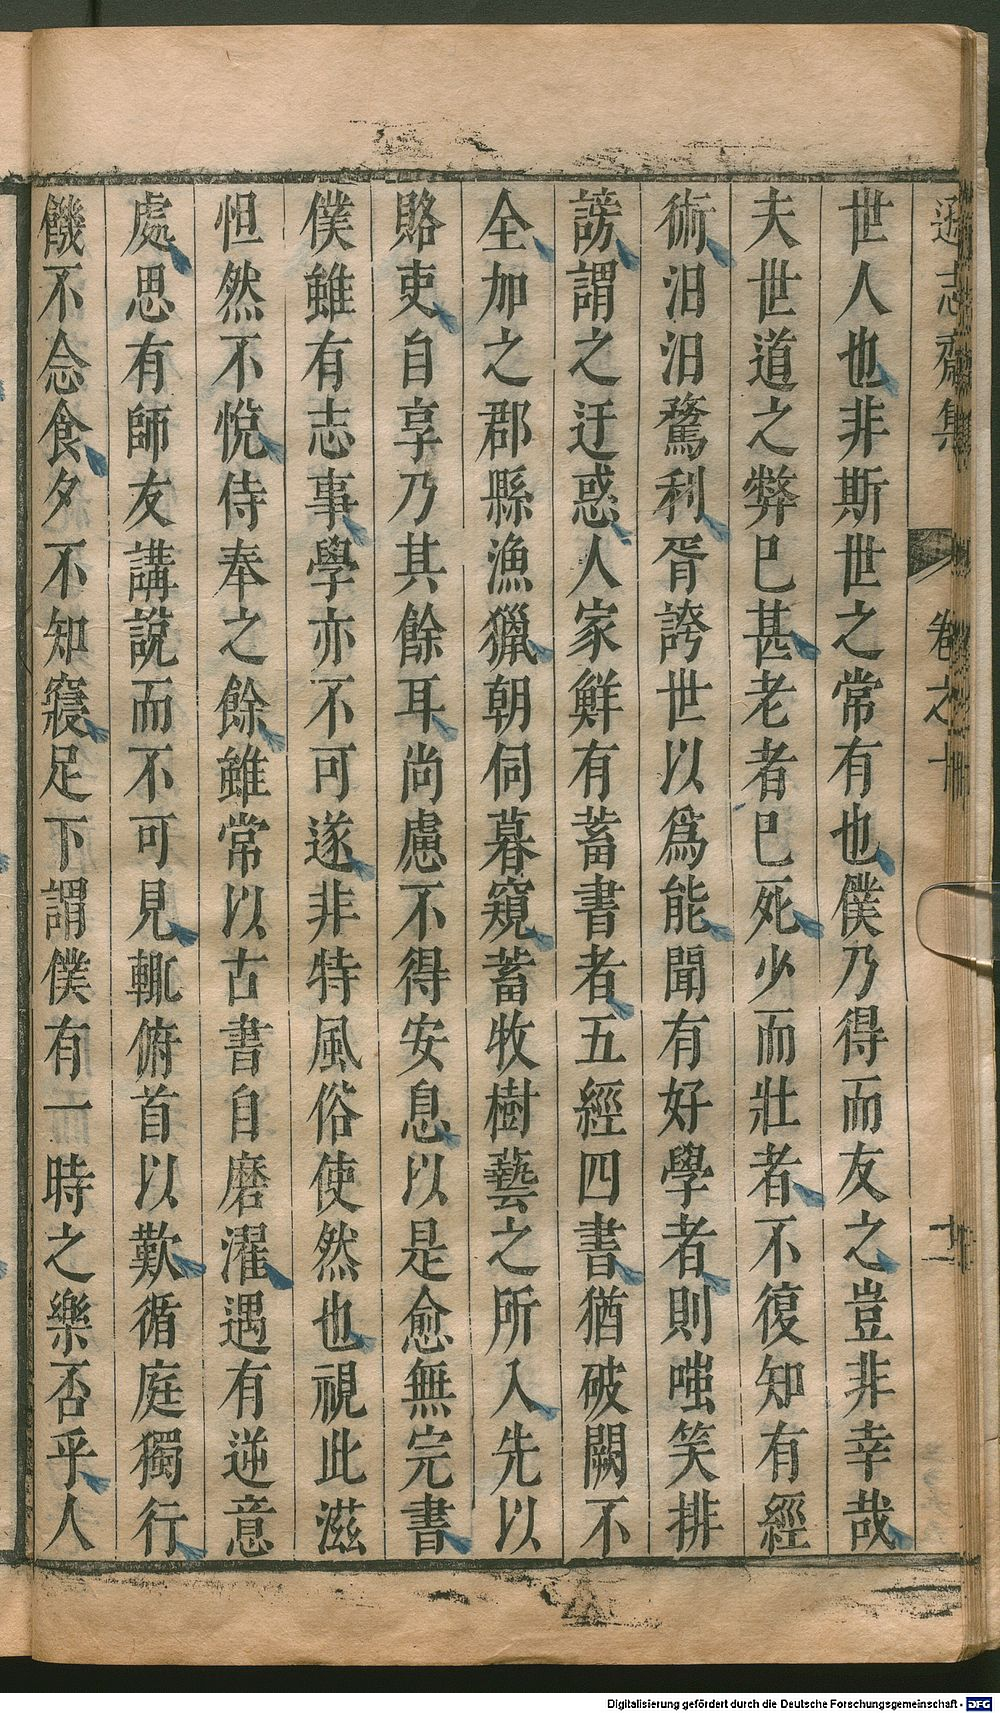 遜志齋集
卷之十
十一
世人也非斯世之常有也僕乃得而友之豈非幸哉
夫世道之弊巳甚老者巳死少而壯者不復知有經
術汨汨騖利胥誇世以爲能聞有好學者則嗤笑排
謗謂之迂惑人家鮮有蓄書者五經四書猶破闕不
全加之郡縣漁獵朝伺暮窺蓄牧樹藝之所入先以
賂吏自享乃其餘耳尚慮不得安息以是愈無完書
僕雖有志事學亦不可遂非特風俗使然也視此滋
怛然不悅侍奉之餘雖常以古書自磨濯遇有逆意
處思有師友講說而不可見輒俯首以歎循庭獨行
饑不念食夕不知寢足下謂僕有一時之樂否乎人
Digitalisierung gefördert durch die Deutsche Forschungsgemeinschaft - DFG